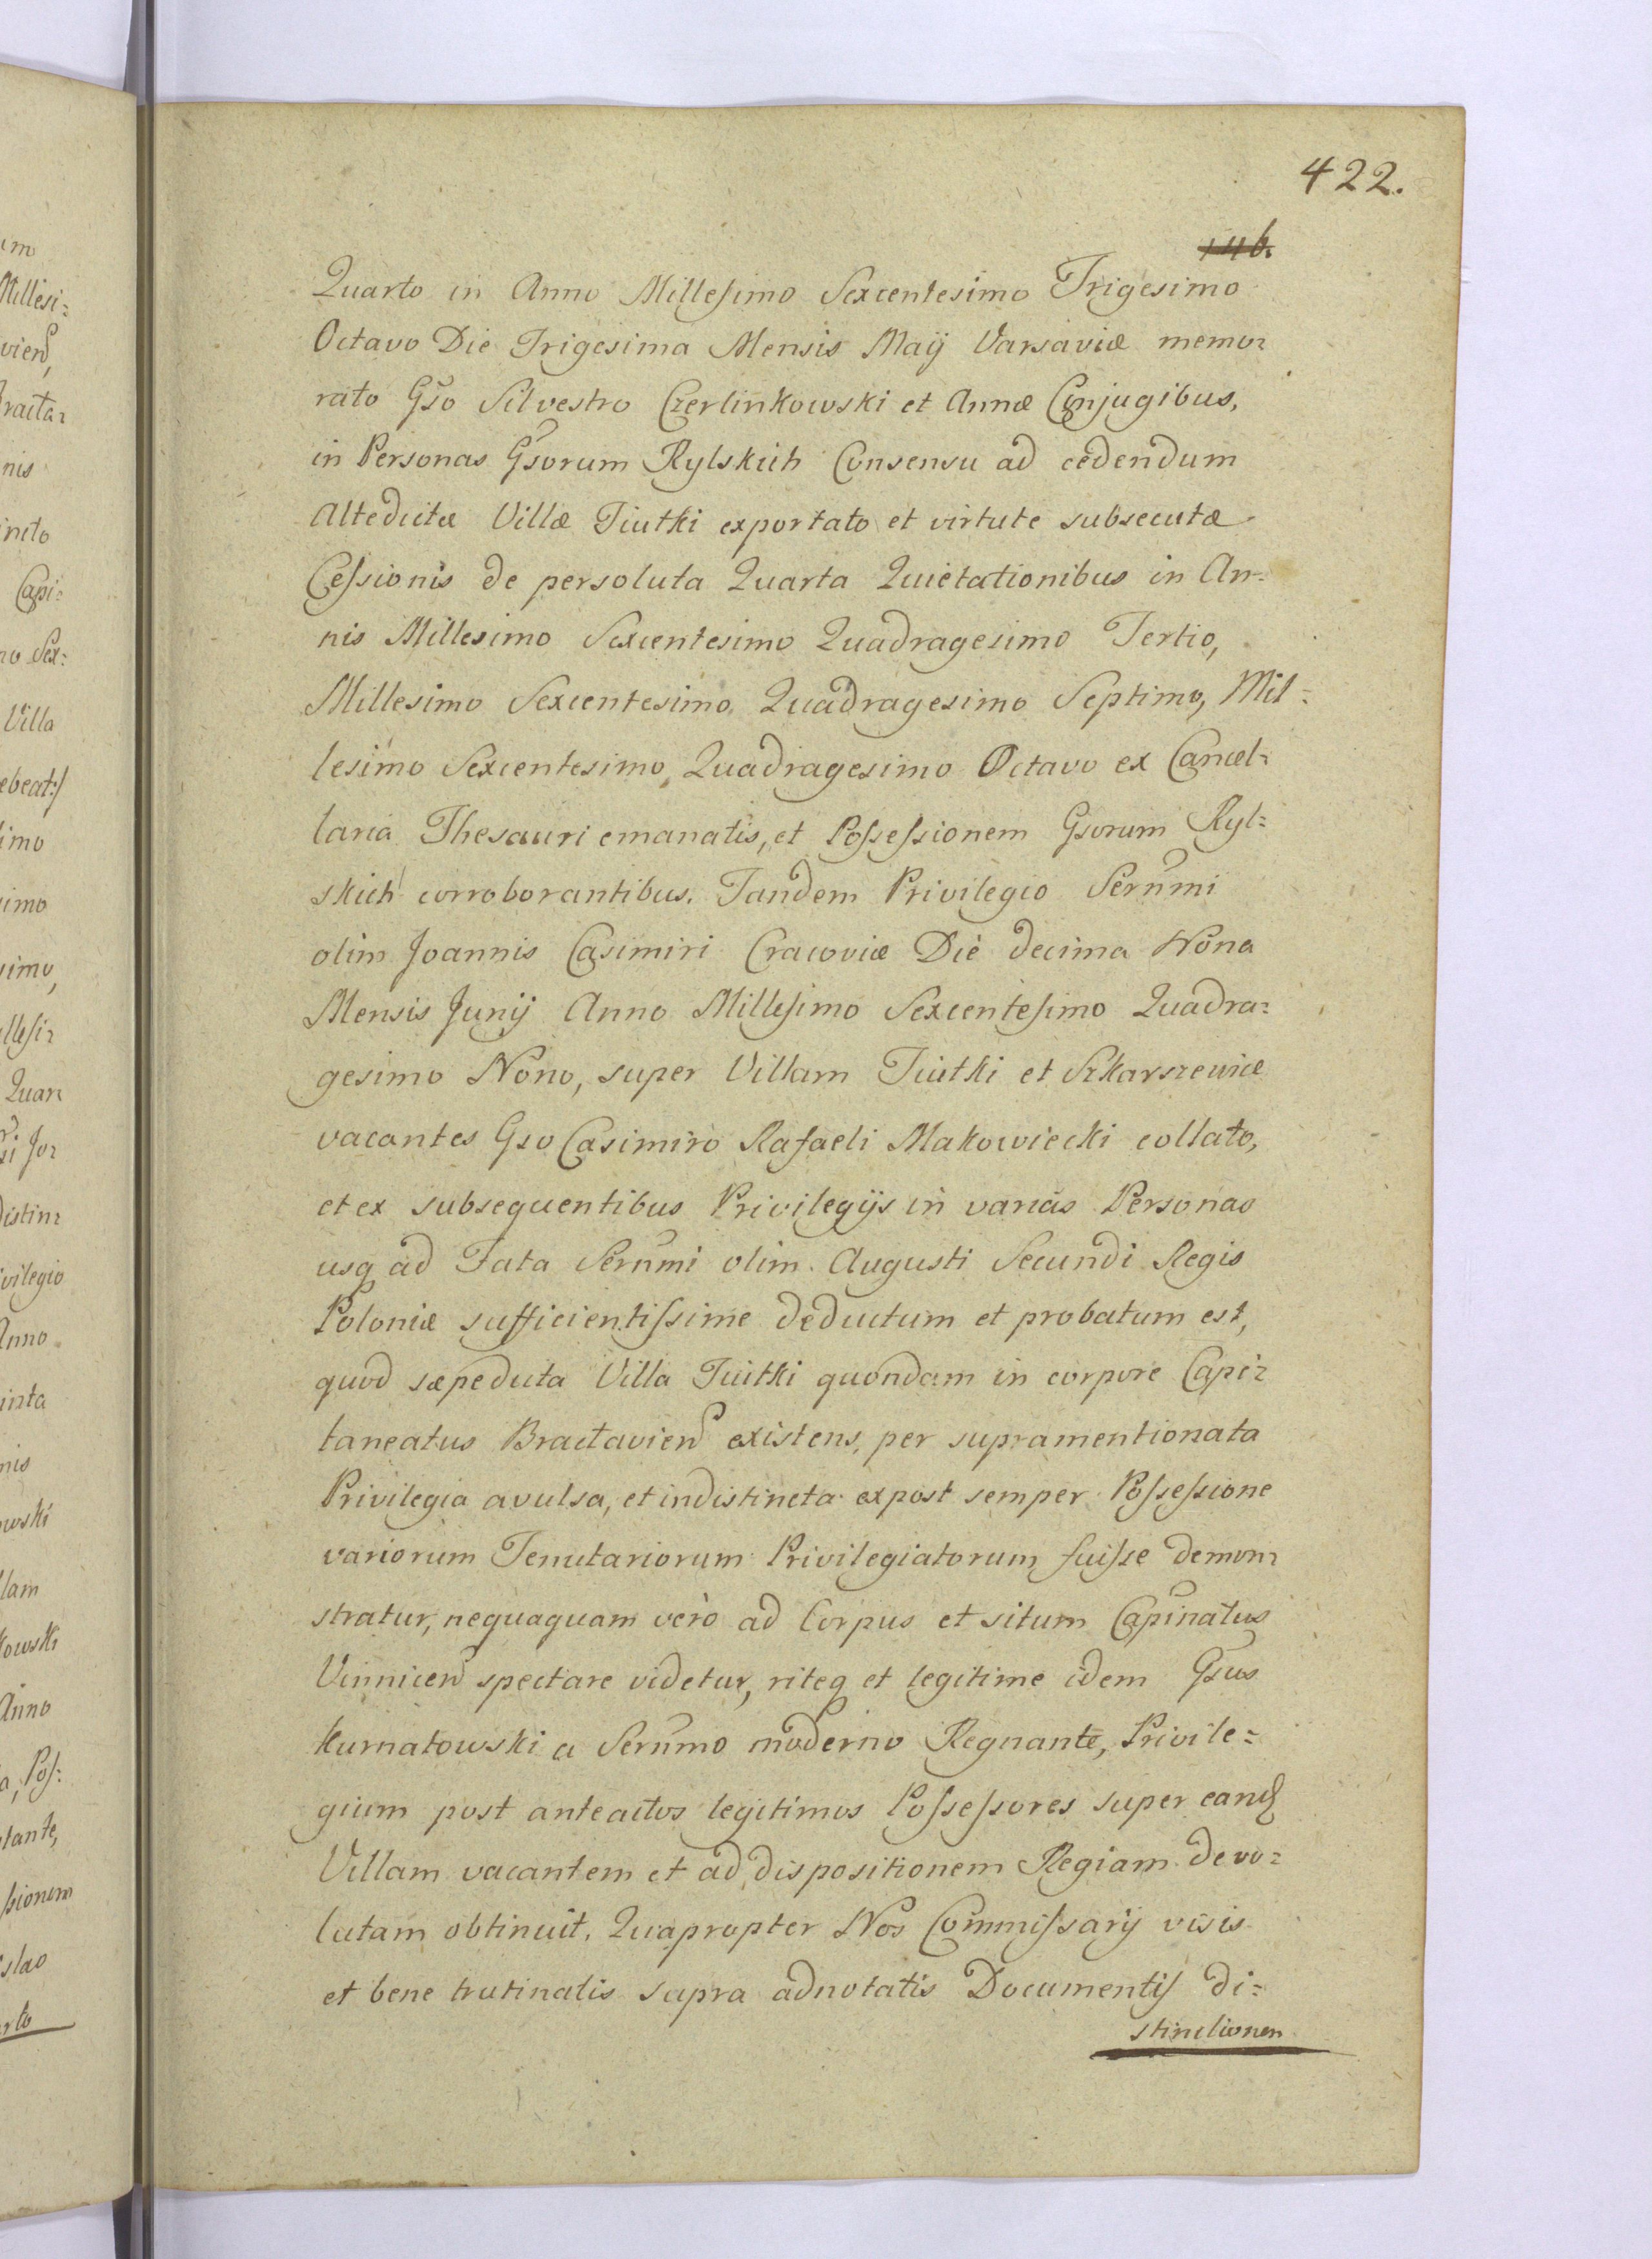 422.
146.
Quarto in Anno Millesimo Sexcentesimo Trigesimo
Octavo Die Trigesima Mensis Maij Varsaviæ memo=
rato Gso Silvestro Czerlinkowski et Annæ Conjugibus,
in Personas Gsorum Rylskich Consensu ad cedendum
Altedictæ Villæ Tiutki exportato et virtute subsecutæ
Cessionis de persoluta Quarta Quietationibus in An=
nis Millesimo Sexcentesimo Quadragesimo Tertio,
Millesimo Sexcentesimo Quadragesimo Septimo, Mil=
lesimo Sexcentesimo Quadragesimo Octavo ex Cancel=
laria Thesauri emanatis, et Possessionem Gsorum Ryl=
skich corroborantibus. Tandem Privilegio Sernmi
olim Joannis Casimiri Cracoviæ Die decima Nona
Mensis Junij Anno Millesimo Sexcentesimo Quadra=
gesimo Nono, super Villam Tiutki et Szkarszewiæ
vacantes Gso Casimiro Rafaeli Makowiecki collato,
et ex subsequentibus Privilegijs in varias Personas
usq ad Fata Sernmi olim Augusti Secundi Regis
Poloniæ sufficientissime deductum et probatum est,
quod sæpedicta Villa Tiutki quondam in corpore Capi=
taneatus Bractavien existens, per supramentionata
Privilegia avulsa, et indistincta expost semper Possessione
variorum Tenutariorum Privilegiatorum fuisse demon=
stratur, nequaquam vero ad Corpus et situm Capinatus
Vinnicen spectare videtur, riteq et legitime idem Gsus
Kurnatowski a Sernmo moderno Regnante, Privile=
gium post anteactos legitimos Possessores super eand
Villam vacantem et ad dispositionem Regiam devo=
lutam obtinuit. Quapropter Nos Commissarij visis
et bene trutinatis supra adnotatis Documentis di=
stinctionem
um
Millesi=
vien,
racta=
nis
incto
Capi=
no Sex=
Villa
ebeat:/
simo
simo
simo,
illesi=
Quar=
si Jo=
distin=
ivilegio
Anno
inta
nis
owski
lam
kowski
Anno
a, Pos=
tante,
ssionem
slao
arto